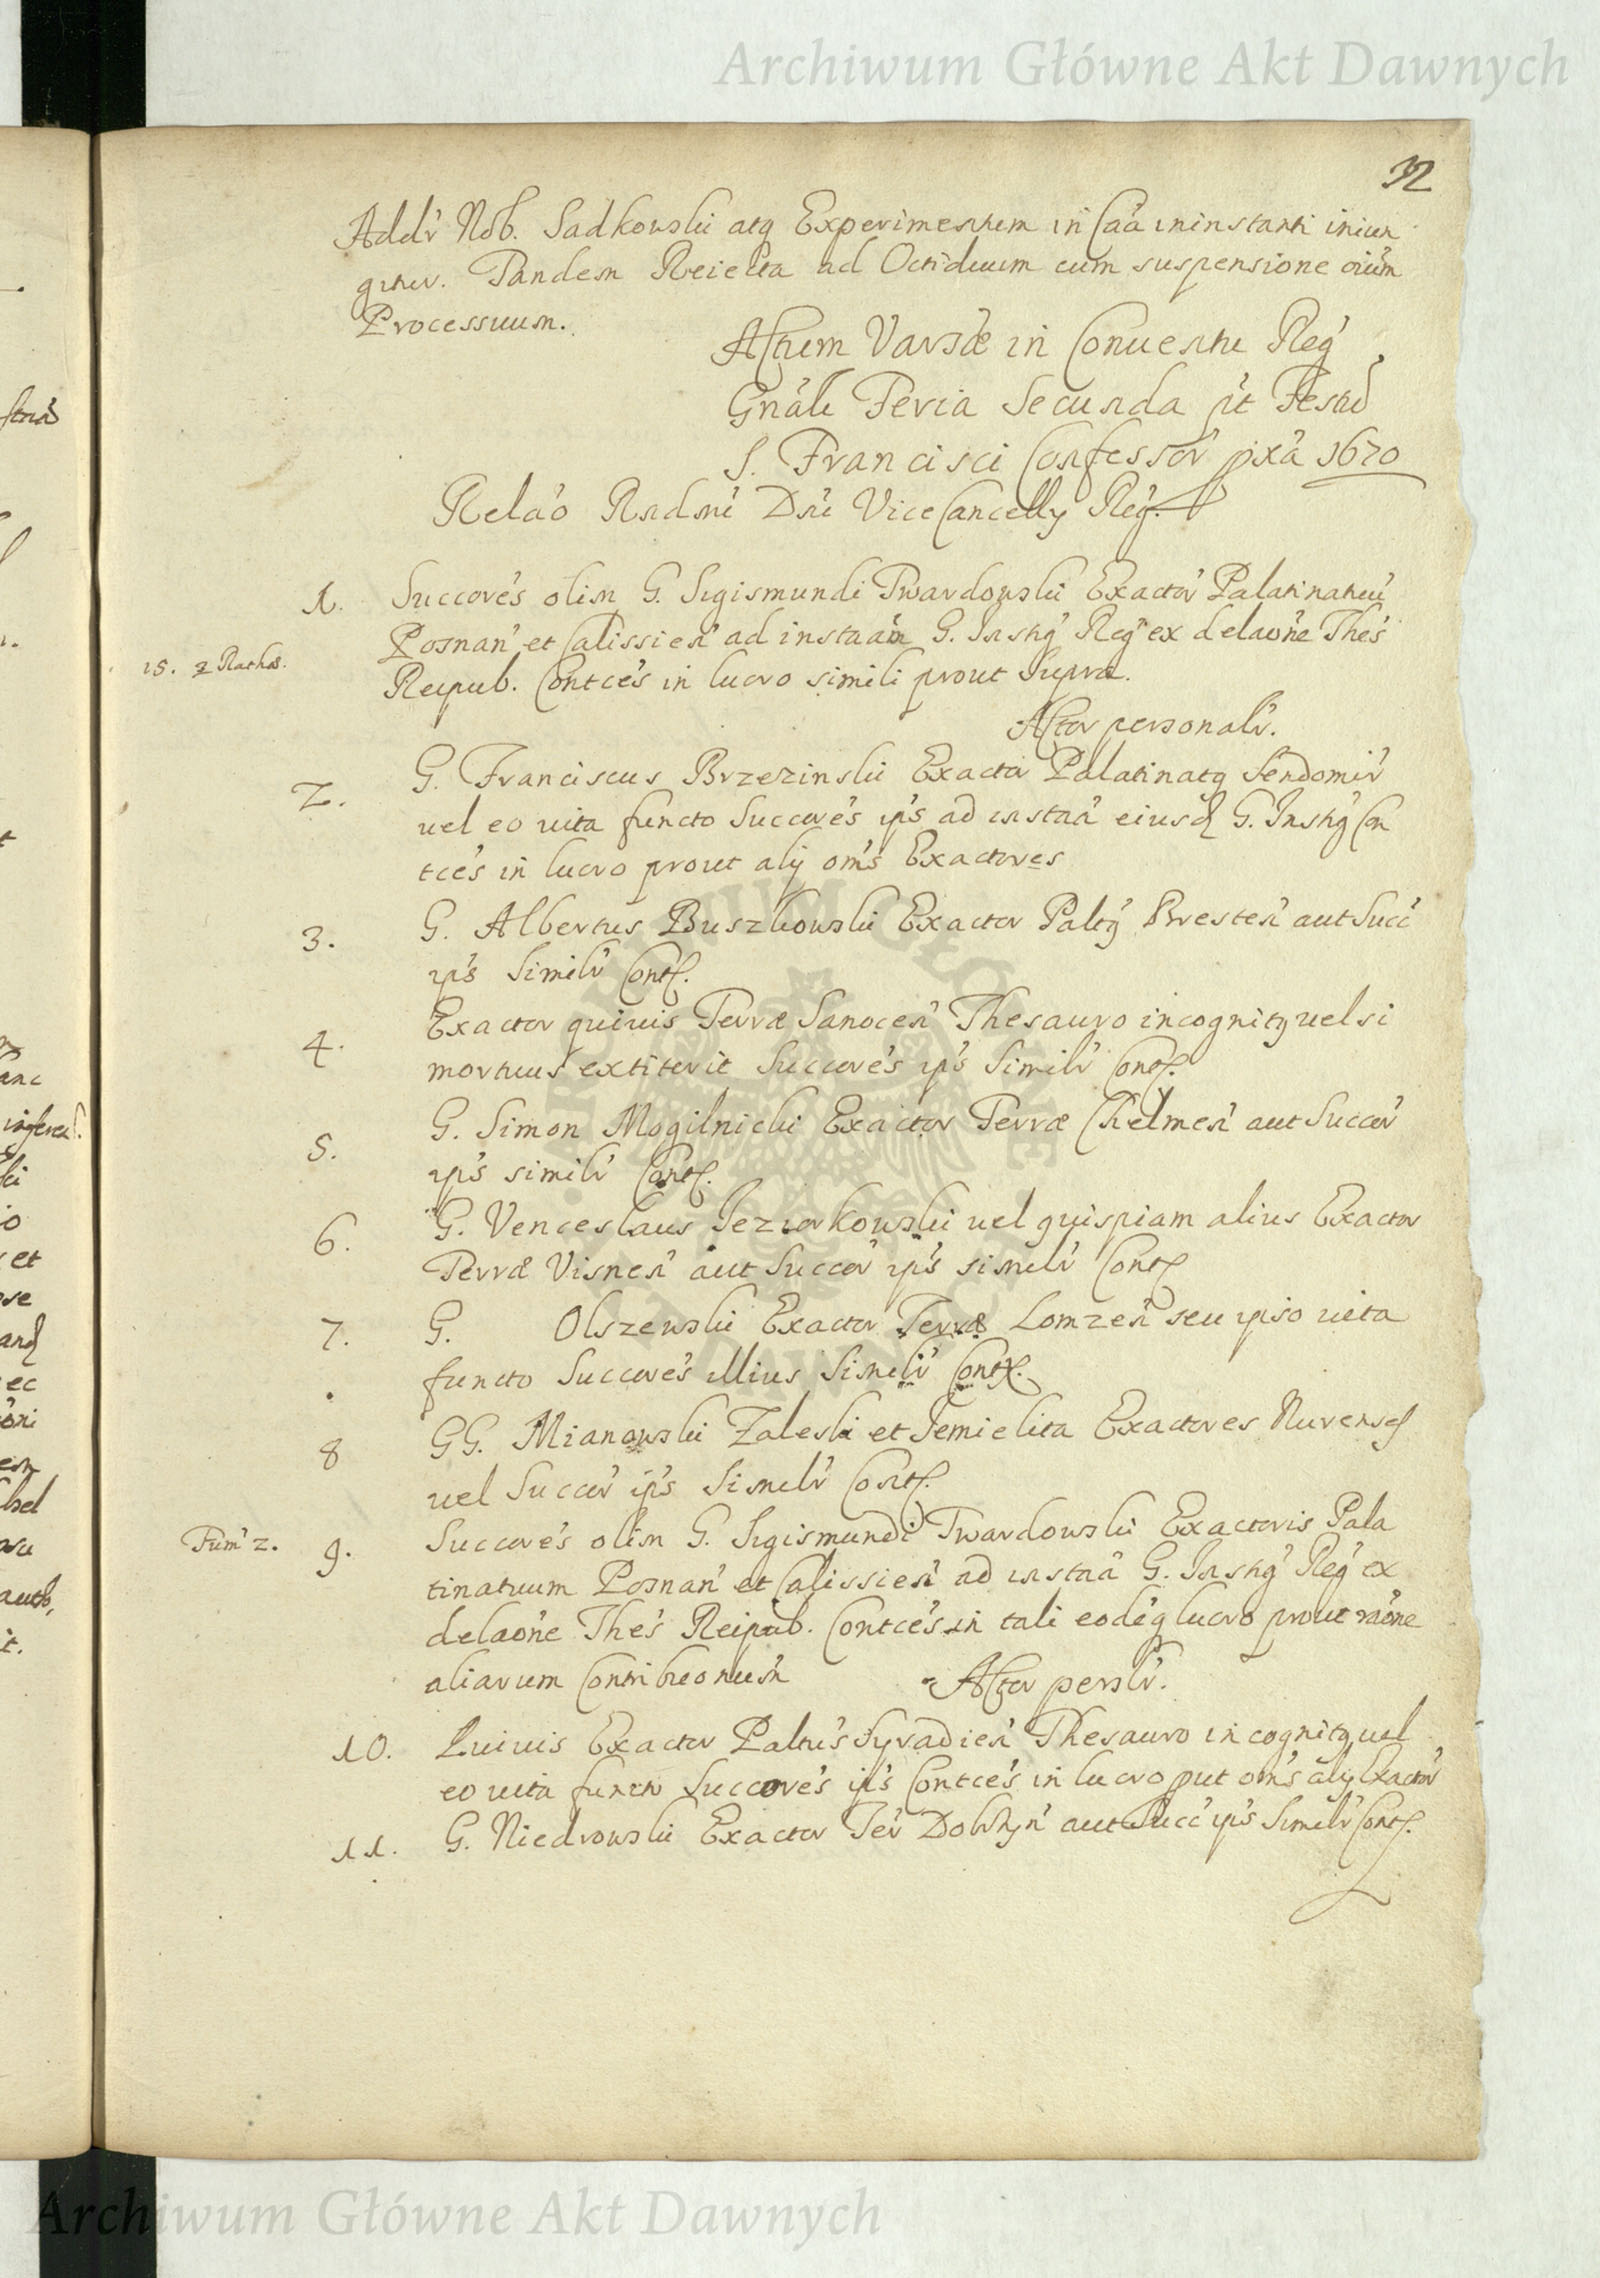 Archiwum Główne Akt Dawnych
32
Addr̃ Nob. Sadkowski atq Experimentum in Caã in instanti iniun
gitur. Tandem Reiecta ad Octiduum cum suspensione oiũm
Processuum.
Actum Varsæ in Conventu Reg̃
Gnãli Feria Secunda pt̃ Festũ
S. Francisci Confessor̃ pxã 1670
Relaõ Rndnĩ Dnĩ ViceCancelly Reg̃.
1. Succorẽs olim G. Sigismundi Twardowski Exactor̃ Palatinatuũ
Poznañ et Calissieñ ad instaãm G. Instig̃ Reg̃ ex delaoñe Thes̃
15. z Rathos. Reipub. Contcẽs in lucro simili prout Supra.
Actor personalr̃.
2. G. Franciscus Brzezinski Exactor Palatinatq Sendomir̃
uel eo uita functo Succorẽs ip̃s ad instaã eiusd G. Instig̃ Con
tcẽs in lucro prout alij om̃s Exactores
3. G. Albertus Buszkowski Exactor Paltq̃ Bresteñ aut Succ̃
ip̃s Similr̃ Cont.
4. Exactor quiuis Terræ Sanoceñ Thesauro incognitq uel si
mortuus extiterit Succorẽs ip̃s Similr̃ Cont.
5. G. Simon Mogilnicki Exactor Terræ Chelmeñ aut Succor̃
ip̃s similr̃ Cont.
6. G. Venceslaus Jeziorkowski uel quispiam alius Exactor
Terræ Visneñ aut Succor̃ ip̃s similr̃ Cont
7. G. Olszewski Exactor Terræ Lomzeñ seu ipso uita
functo Succorẽs illius Similr̃ Cont.
8 GG. Mianowski Zaleski et Jemielita Exactores Nurens
uel Succor̃ ip̃s Similr̃ Cont.
Fum̃ 2. 9. Succorẽs olim G. Sigismundi Twardowski Exactoris Pala
tinatuum Poznañ et Calissieñ ad instaã G. Instig̃ Reg̃ ex
delaoñe Thes̃ Reipub. Contcẽs in tali eodẽq lucro prout raõne
aliarum Contribuonum̃ Actor perslr̃.
10. Quiuis Exactor Paltuš Syradieñ Thesauro incognitq uel
eo uita functo Succorẽs ip̃s Contcẽs in lucro put om̃s alij Exactor̃
11. G. Niedrowski Exactor Ter̃ Dobrzyñ aut Succ̃ ip̃s Similr̃ Cont.
Archiwum Główne Akt Dawnych